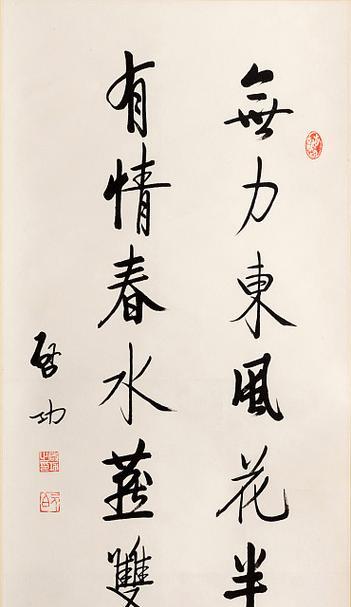 無力東風花半
有情春水燕雙
启功